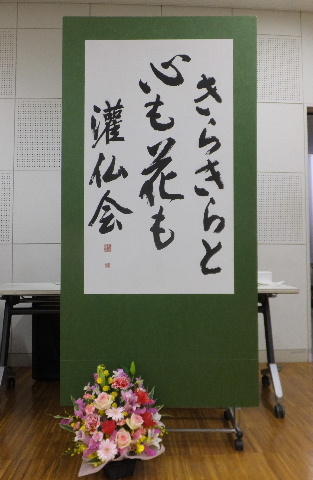 きらきらと
心も花も
灌仏会